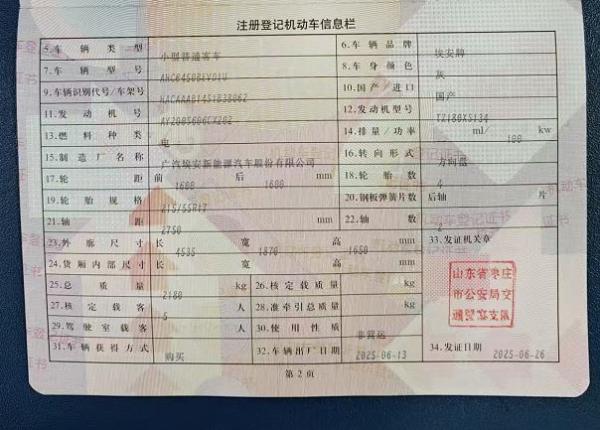 注册登记机动车信息栏
5.车辆类型 小型普通客车 6.车辆品牌 埃安牌
7.车辆型号 8.车身颜色 灰
9.车辆识别代号/车架号 10.国产/进口 国产
11.发动机号 12.发动机型号 TZ180XS134
13.燃料种类 电 14.排量/功率 ml/ 100 kw
15.制造厂名称 广汽埃安新能源汽车股份有限公司 16.转向形式 方向盘
17.轮距 前 1600 后 1600 mm 18.轮胎数 4
19.轮胎规格 215/55R17 20.钢板弹簧片数 后轴 片
21.轴距 2750 mm 22.轴数 2
23.外廓尺寸 长 4535 宽 1870 高 1650 mm 33.发证机关章
24.货厢内部尺寸 长 宽 高 mm
25.总质量 2180 kg 26.核定载质量 kg
27.核定载客 5 人 28.准牵引总质量 kg
29.驾驶室载客 人 30.使用性质 非营运
31.车辆获得方式 购买 32.车辆出厂日期 2025-06-13 34.发证日期 2025-06-26
山东省枣庄
市公安局交
通警察支队
第2页